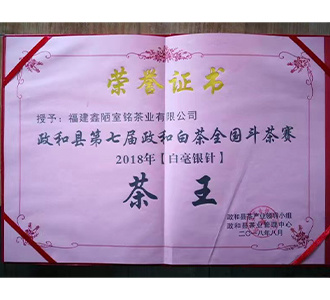 荣誉证书
授予：福建鑫陋室铭茶业有限公司
政和县第七届政和白茶全国斗茶赛
2018年【白毫银针】
茶王
政和县茶产业领导小组
政和县茶业管理中心
二〇一八年八月